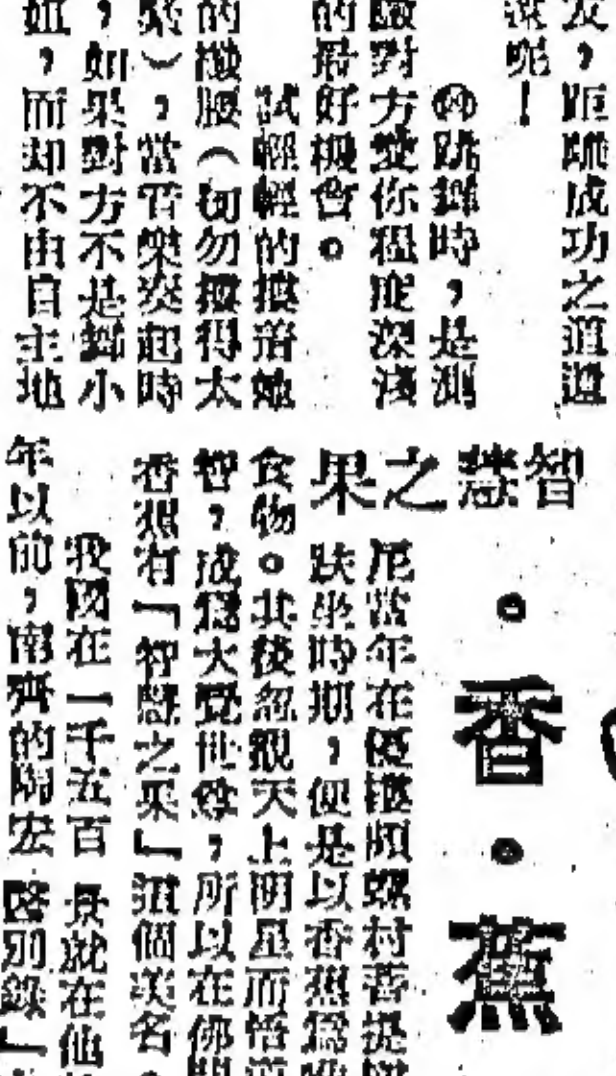 友，距離成功之道還
深呢！
㈣跳舞時，是測
驗對方愛你程度深淺
的最好機會。
試輕輕的摟着她
的纖腰（切勿摟得太
緊），當音樂奏起時
，如果對方不是舞小
姐，而却不由自主地
智慧之果
。香。蕉
尼當年在優樓頻螺村菩提
趺坐時期，便是以香蕉爲唯
食物。其後忽觀天上明星而悟道
智，成爲大覺世尊，所以在佛門
香蕉有「智慧之果」這個美名。
我國在一千五百
年以前，南齊的陶宏
景就在他
別錄」